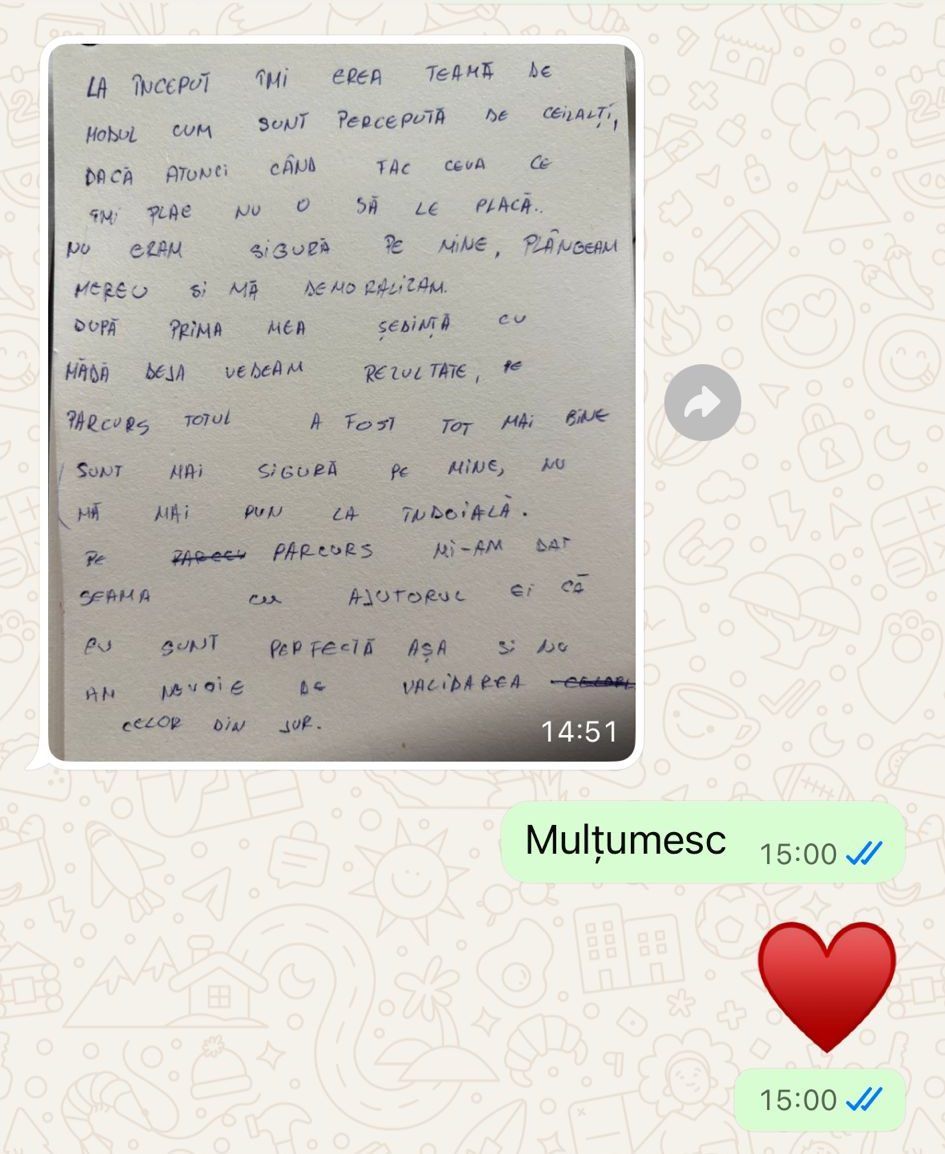 LA ÎNCEPUT ÎMI EREA TEAMĂ DE
MODUL CUM SUNT PERCEPUTĂ DE CEILALȚI,
DACĂ ATUNCI CÂND FAC CEVA CE
ÎMI PLAC NU O SĂ LE PLACĂ..
NU ERAM SIGURĂ PE MINE, PLÂNGEAM
MEREU SI MĂ DEMORALIZAM.
DUPĂ PRIMA MEA ȘEDINȚĂ CU
MĂDĂ DEJA VEDEAM REZULTATE, PE
PARCURS TOTUL A FOST TOT MAI BINE
SUNT MAI SIGURĂ PE MINE, NU
MĂ MAI PUN LA ÎNDOIALĂ.
PE PARCURS MI-AM DAT
SEAMA cu AJUTORUL EI CĂ
EU SUNT PERFECTĂ AȘA SI NU
AM NEVOIE DE VALIDAREA
CELOR DIN JUR.
14:51
Mulțumesc 15:00
15:00